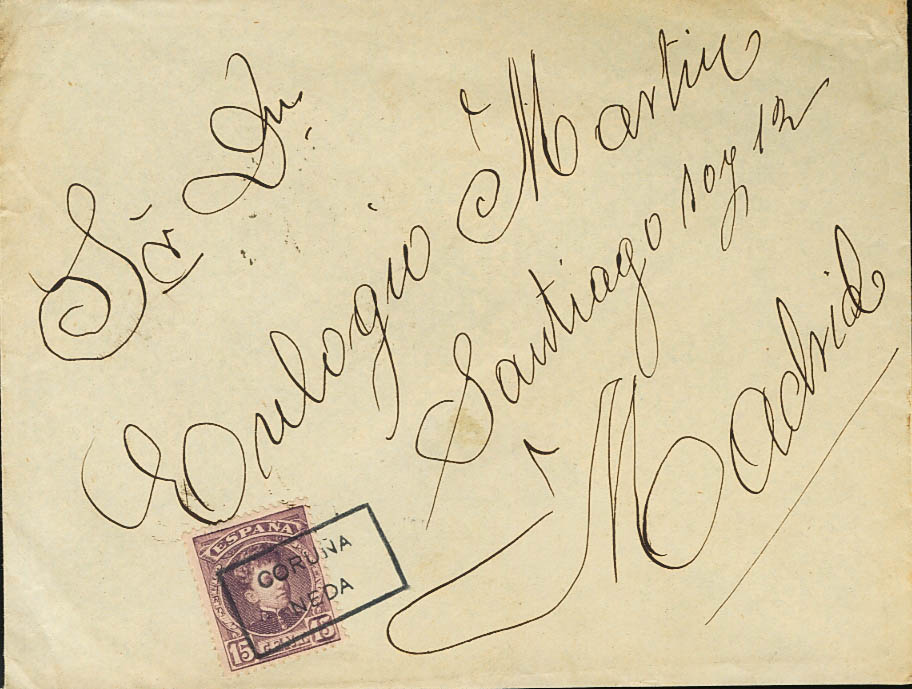 Sr Dn.
Eulogio Martin
Santiago 10 y 12
Madrid
ESPAÑA
CORUÑA
NEDA
15 CENT. 15